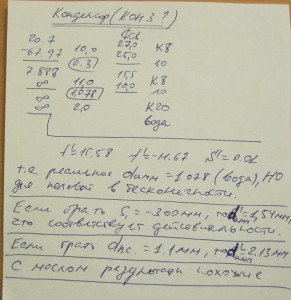 Конденсор (КОН 3?)
Фсв.
20.7 27,0 К8
-67.97 10,0 25,0 10
7.888 0.3 15,5 К8
∞ 11,0 10,0 10
∞ 1,078 К20
∞ 2,0 вода
f'=15,58 f'=-11.67 S'=0.02
т.е. реальное dимм = 1.078 (вода), НО
для полевой в бесконечности.
Если брать S₁ = -300мм, то dимм = 1,54мм
что соответствует действительности.
Если брать dпс. = 1.1мм, то dимм = 2,13мм
С маслом результаты похожие